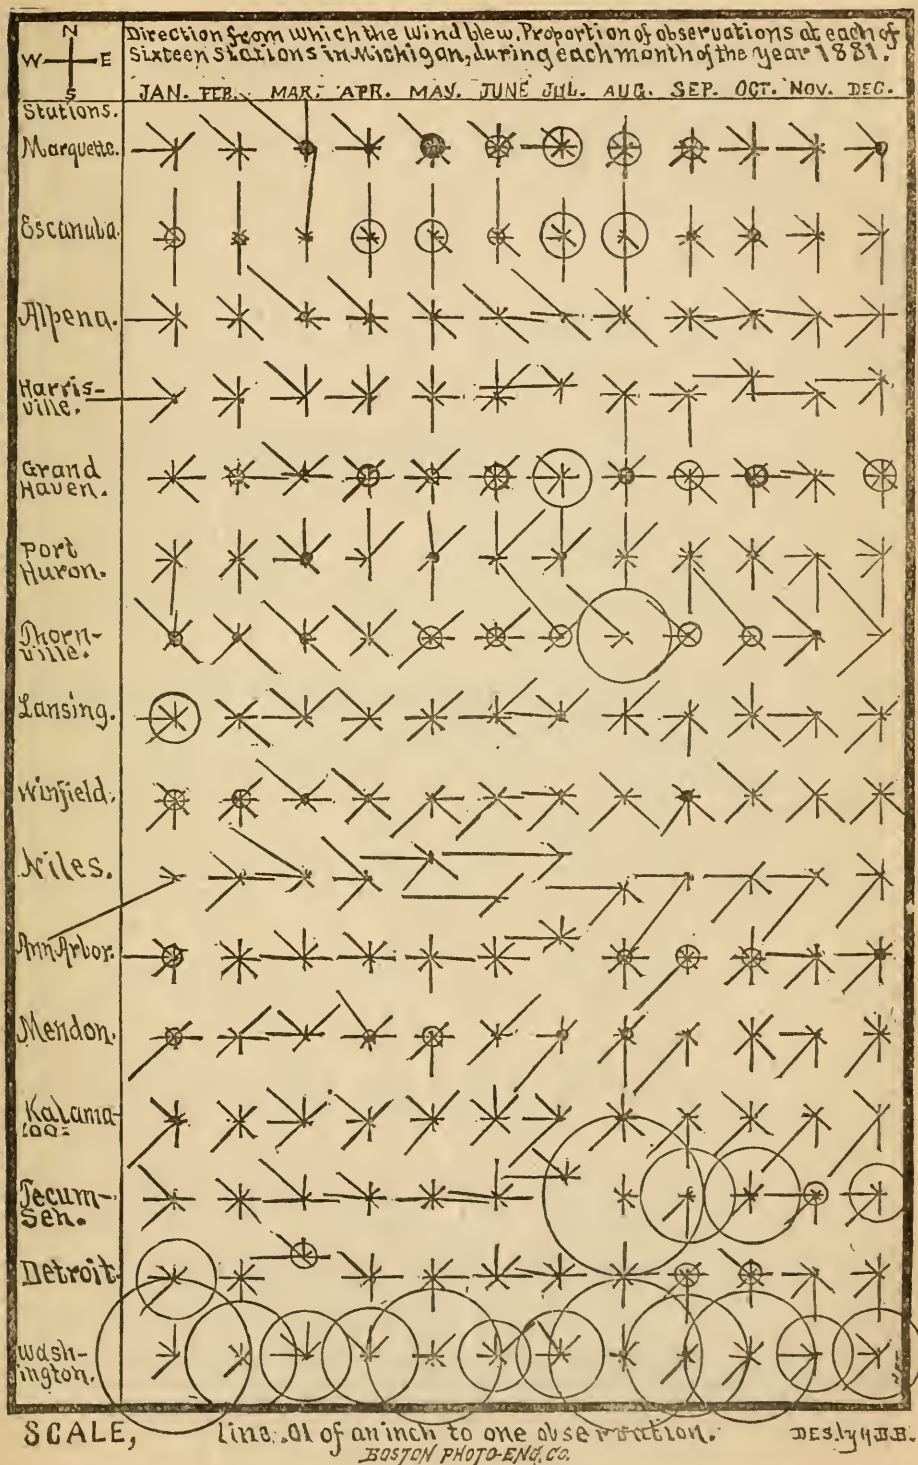 N
W E
S
Direction from which the wind blew, Proportion of observations at each of
Sixteen Stations in Michigan, during each month of the year 1881.
JAN. FEB. MAR. APR. MAY. JUNE JUL. AUG. SEP. OCT. NOV. DEC.
Stations.
Marquette.
Escanaba.
Alpena.
Harris-
ville.
Grand
Haven.
Port
Huron.
Thorn-
ville.
Lansing.
Winfield.
Niles.
Ann Arbor.
Mendon.
Kalama-
zoo=
Tecum-
seh.
Detroit
Wash-
ington.
SCALE, line .01 of an inch to one observation. DES. by H.B.B.
BOSTON PHOTO-ENG. CO.